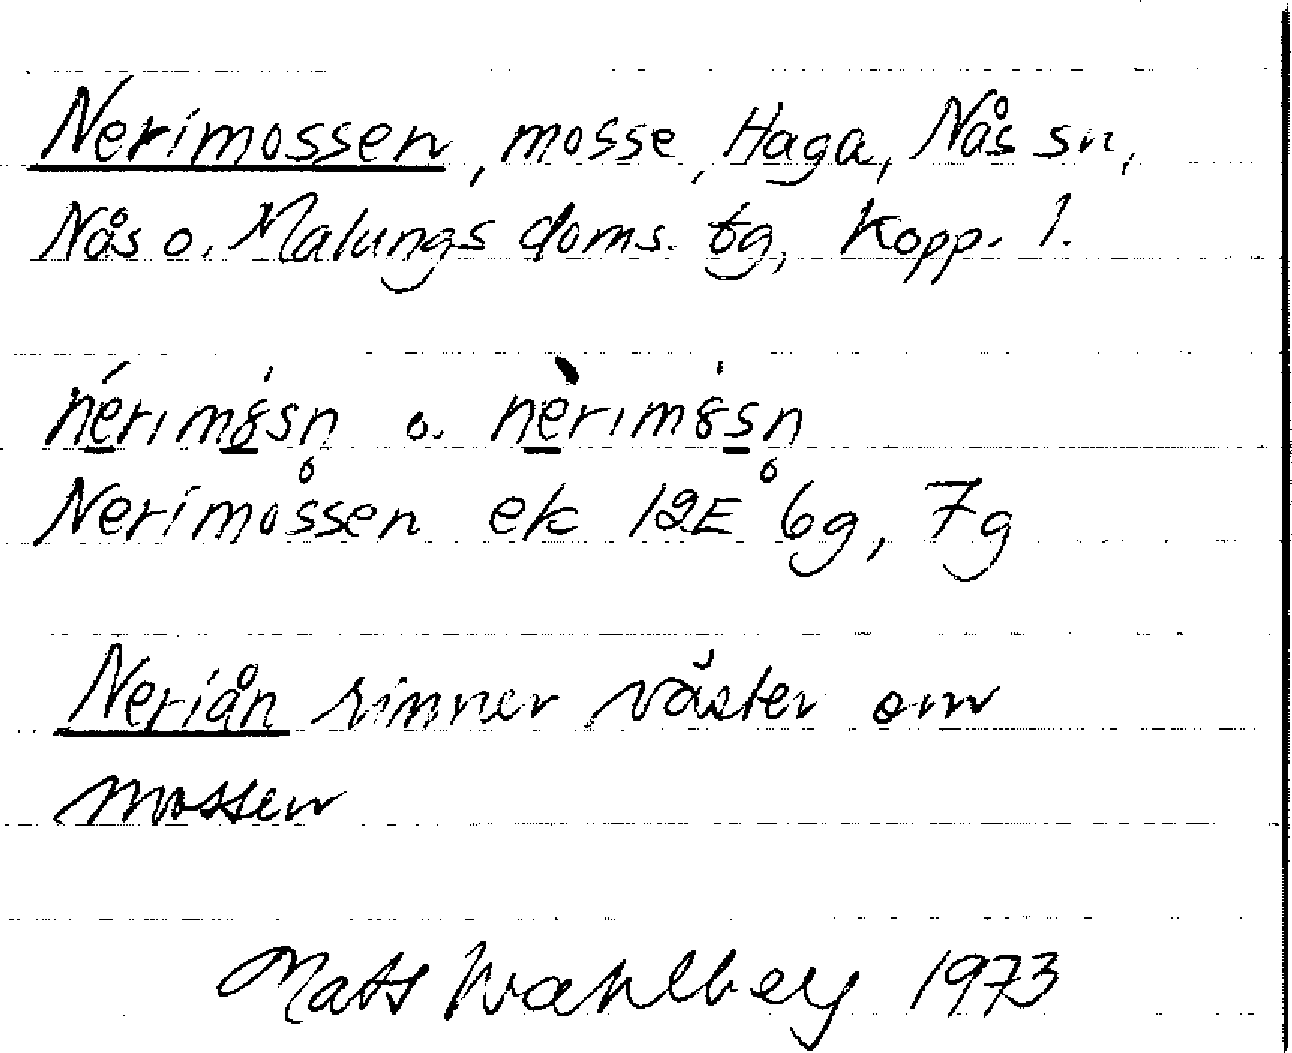 Nerimossen, mosse, Haga, Nås sn,
Nås o. Malungs doms. tg, Kopp. l.
nérimȣ́sn o. nèrimȣ́sn
Nerimossen ek 12E 6g, 7g
Neriån rinner väster om
mossen
Mats Wahlberg 1973